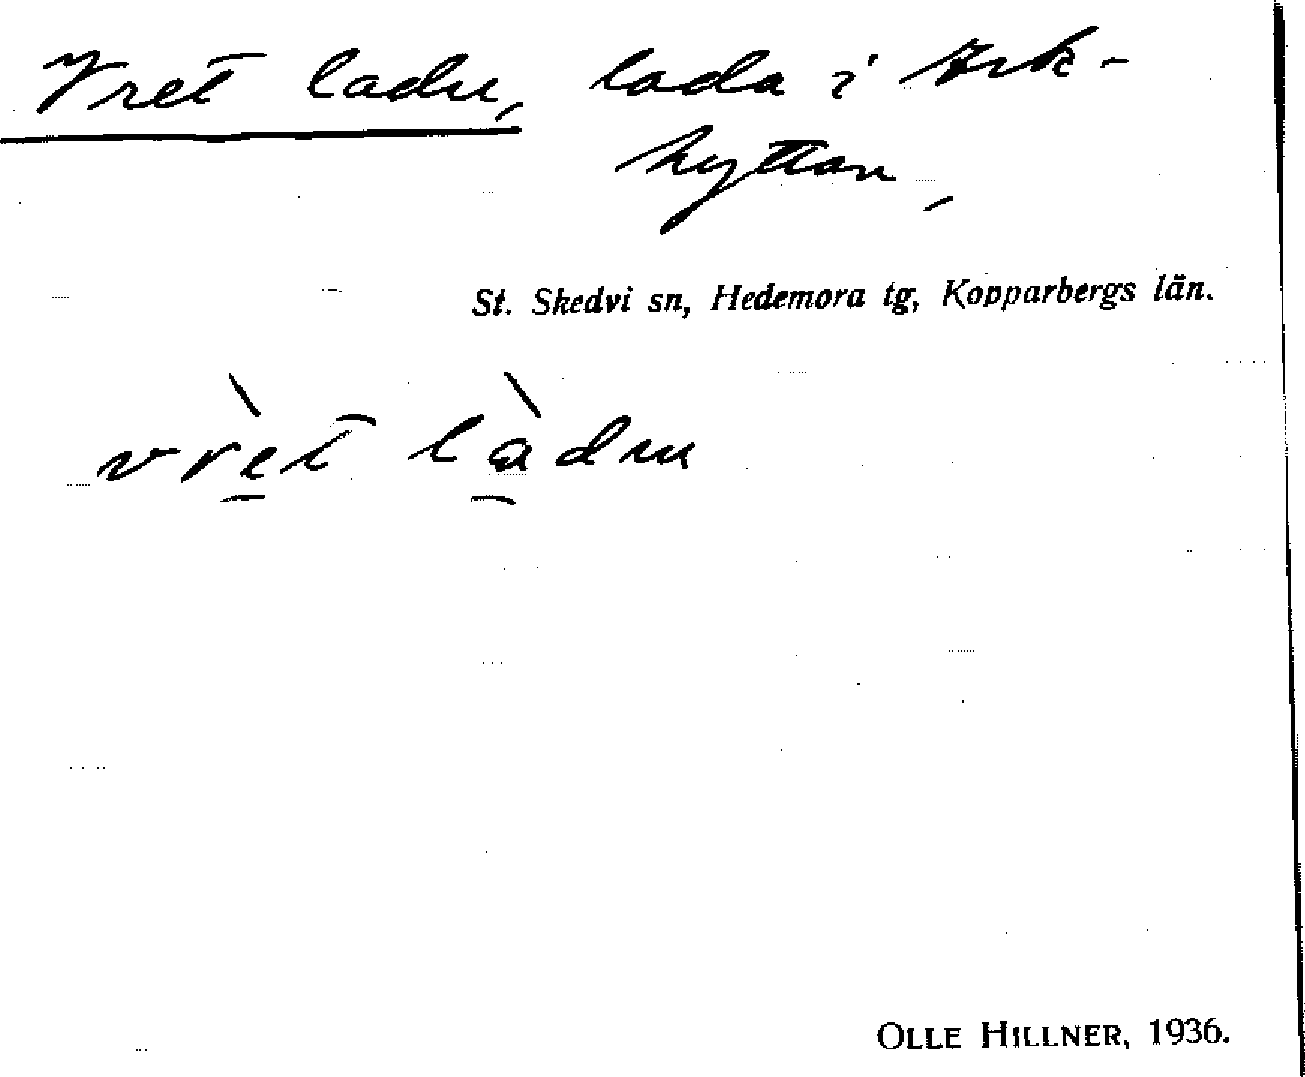 Vret ladu, lada i Ark-
hyttan,
St. Skedvi sn, Hedemora tg, Kopparbergs län.
vrèt làdu
OLLE HILLNER, 1936.